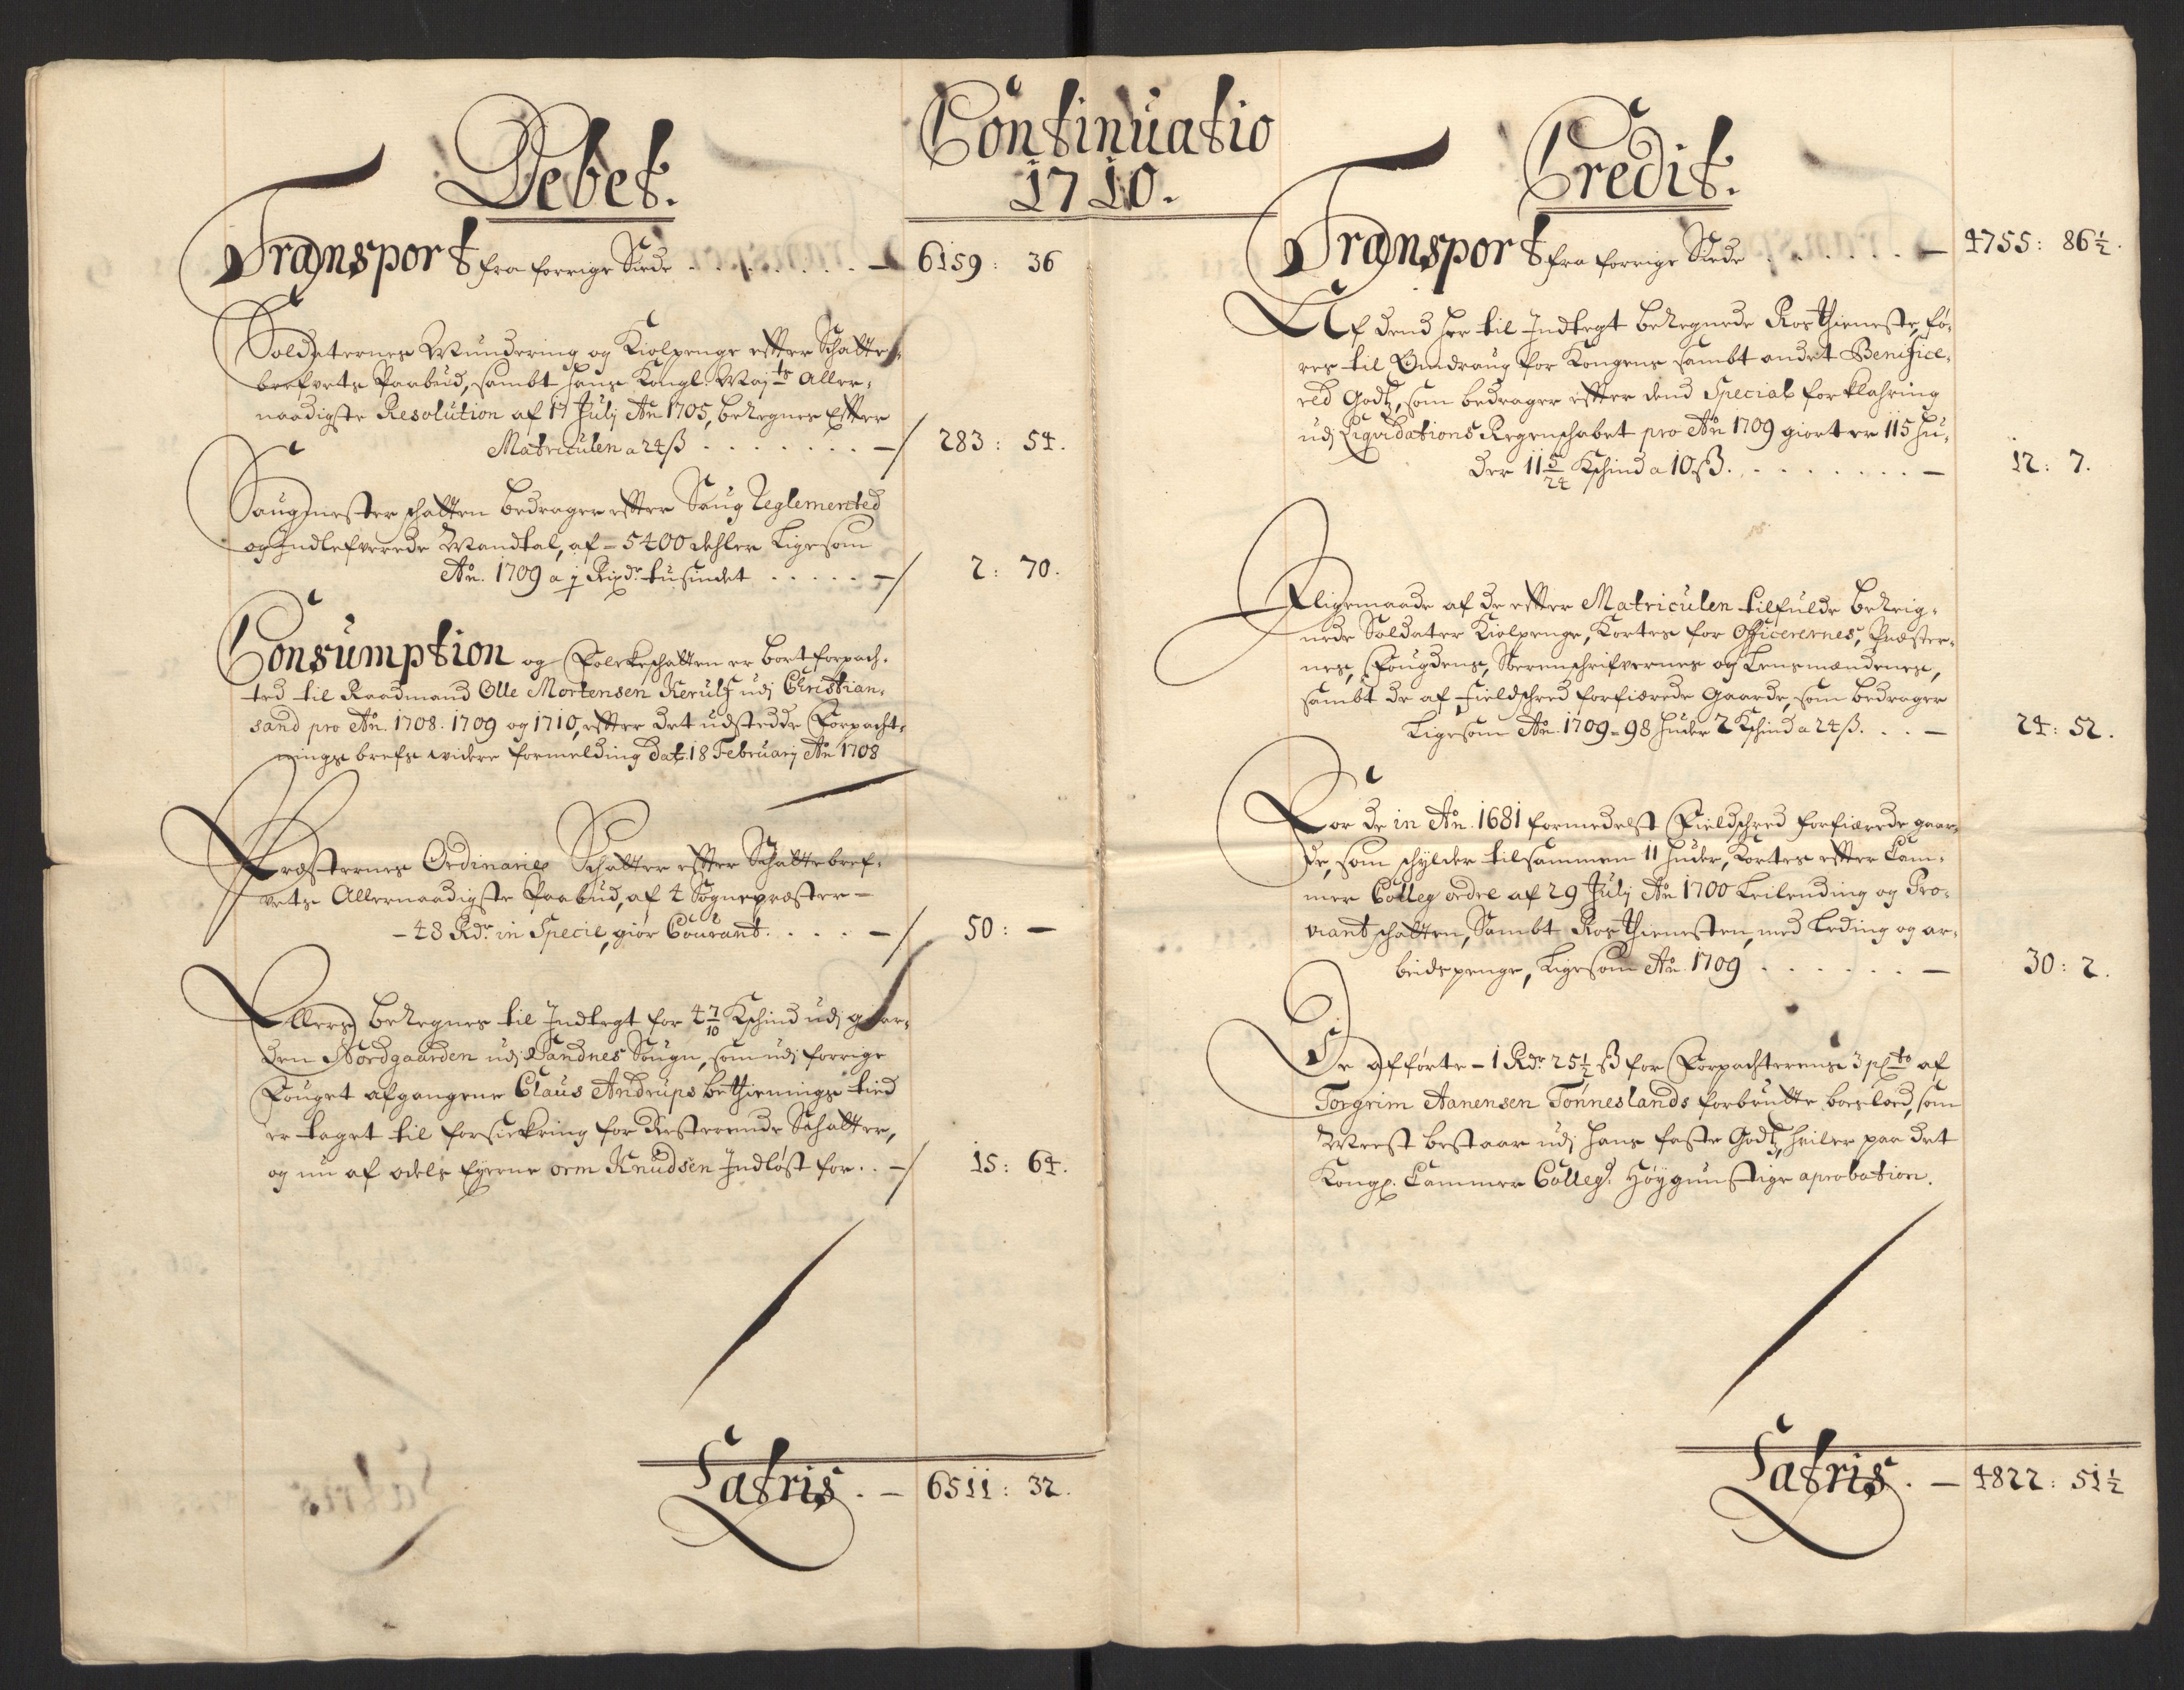 Continuatio
1710.
Debet.
Transport fra forrige Siide . . . . . . . — 6159 : 36
Soldaternes Mundering og Kiolpenge effter Schatte-
brefvets Paabud, sambt hans Kongl. Maj.ts Aller-
naadigste Resolution af 17 Julj Ao 1705, beregnes effter
Matriculen a 24 ß . . . . . . . — / 283 : 54.
Saugmester schatten bedrager effter Saug Reglemented
og Indlefverede Mandtal, af - 5400 dehler Ligesom
Ao. 1709 a 1 Rixdr. tusindet . . . . . — / 2 : 70.
Consumption og Folckeschatten er bortforpach-
ted til Raadmand Olle Mortensen Kerulf udj Christian-
sand pro Ao. 1708. 1709 og 1710, effter det udstedde Forpacht-
nings brefs widere formelding dat. 18 Februarij Ao 1708
Præsternes Ordinarie Schatter effter Schattebref-
vets Allernaadigste Paabud, af 4 Sognepræster —
- 48 Rdr. in Specie, giør Courant. . . . — / 50 : —
Ellers beregnes til Indtegt for 4 7/10 Kschind udj gaar-
den Nordgaarden udj Sandnes Sougn, som udj forrige
Fouget afgangene Claus Andrups bethiennings tied
er taget til forsickring for Resterende Schatter,
og nu af odels Eyerne orm Knudsen Indløst for . . — / 15 : 64.
Latris. — 6511 : 32.
Credit.
Transport fra forrige Siide . . . . . . — 4755 : 86½.
Af dend her til Indtegt beregnede Rosthieneste, fø-
res til Omdraug for Kongens sambt andet Benifice-
red Godtz, som bedrager effter dend Special forklahring
udj Liqvidations Regenschabet pro Ao 1709 giort er 115 Hu-
der 11 5/24 Kschind a 10 ß. . . . . . . . — 12 : 7.
Iligemaade af de effter Matriculen tilfulde bereig-
nede Soldater Kiolpenge, Kortes for Officerernes, Præster-
nes, Fougdens, Sorenschrifvernes og Lensmændenes,
sambt de af Fieldschred forfiærede Gaarde, som bedrager
Ligesom Ao. 1709 - 98 Huder 2 Kschind a 24 ß. . . — 24 : 52.
For de in Ao. 1681 formedelst Fieldschred forfiærede gaar-
de, som schylder tilsammen 11 Huder, Kortes effter Cam-
mer Colleg ordre af 29 Julj Ao 1700 Leilending og Pro-
viant schatten, Sambt Rosthienesten, med Leding og ar-
beidspenge, Ligesom Ao. 1709 . . . . . . — 30 : 2.
De afførte - 1 Rdr. 25½ ß for Forpachterens 3 p.to af
Torgrim Aanensen Tonneslands forbrutte boeslod, som
Meest bestaar udj hans faste Godtz, hviler paa det
Kongl. Cammer Colleg: Høygunstige aprobation.
Latris. — 4822 : 51½